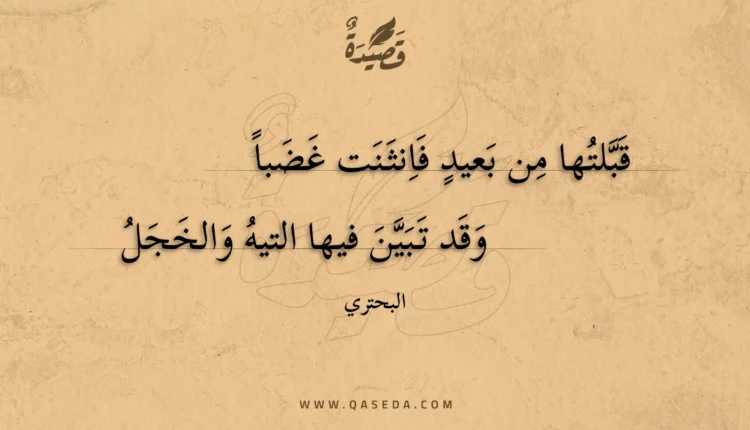 قَصِيْدَةٌ
قَبَّلتُها مِن بَعيدٍ فَاِنثَنَت غَضَباً
وَقَد تَبَيَّنَ فيها التيهُ وَالخَجَلُ
البحتري
WWW.QASEDA.COM